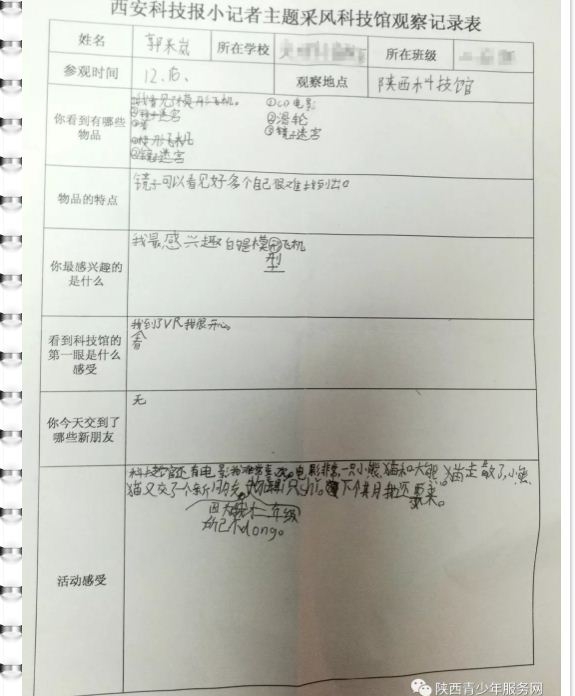 西安科技报小记者主题采风科技馆观察记录表
姓名 郭 岚 所在学校 所在班级
参观时间 12.16、 观察地点 陕西科技馆
你看到有哪些物品
①我看见了模形飞机。 ①CD电影
②镜子迷宫 ②滑轮
③ ③镜子迷宫
①模形飞机
②镜子迷宫
物品的特点
镜子可以看见好多个自己很难找到出口
你最感兴趣的是什么
我最感兴趣的是模型飞机
看到科技馆的第一眼是什么感受
我看到了VR我很开心。
你今天交到了哪些新朋友
无
活动感受
还有电影我非常喜 电影 一只小熊猫和大熊猫走散了,小熊
猫又交了一个新朋友, 下个月我还要来。
因为我才二年级
所以不dong。
陕西青少年服务网